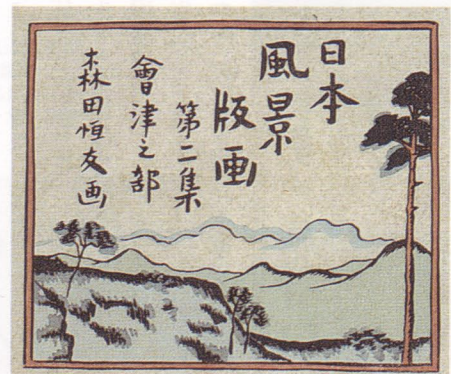 日本
風景
版画
第二集
會津之部
森田恒友画